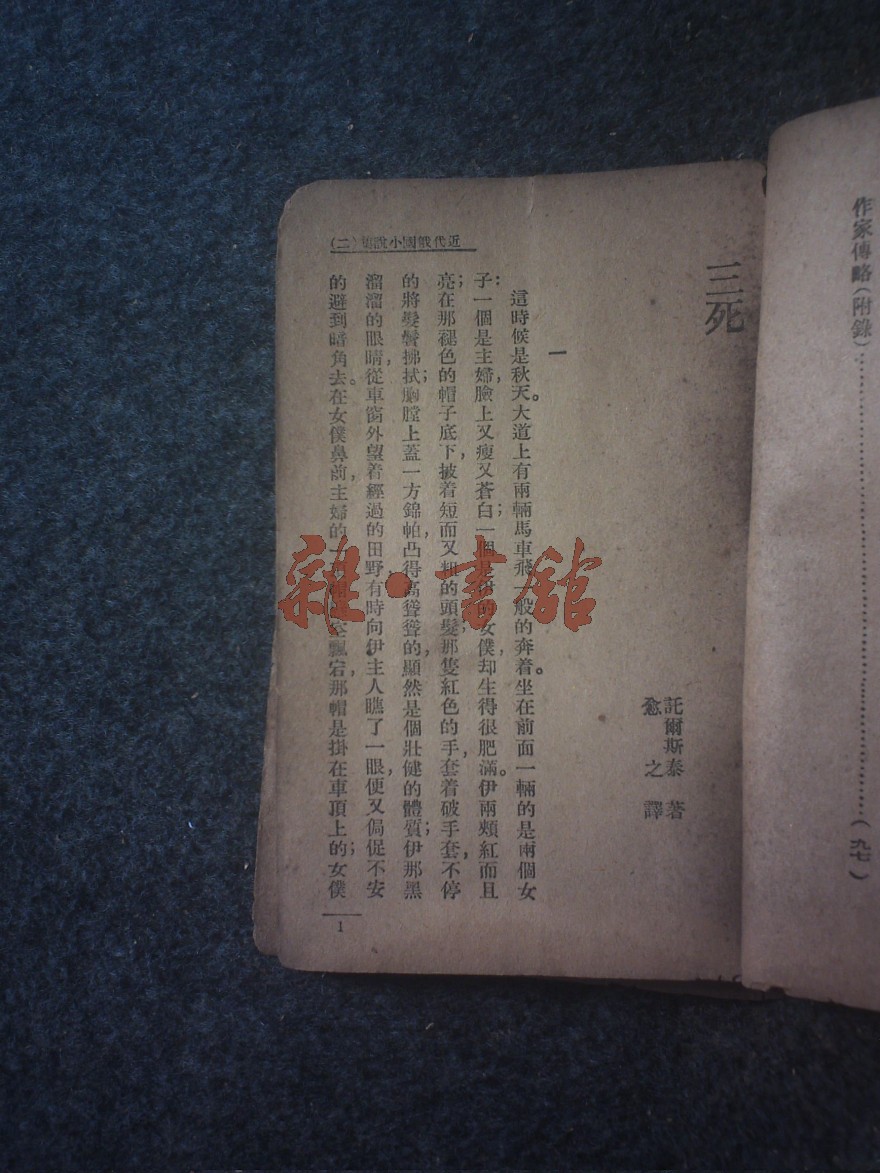 作家傳略(附錄)……………………(九七)
三死
託爾斯泰 著
愈之 譯
一
這時候是秋天。大道上有兩輛馬車飛一般的奔着。坐在前面一輛的是兩個女
子:一個是主婦,臉上又瘦又蒼白;一個是伊的女僕,却生得很肥滿。伊兩頰紅而且
亮;在那褪色的帽子底下,披着短而又粗的頭髮;那隻紅色的手,套着破手套,不停
的將髮鬢拂拭;胸膛上蓋一方錦帕,凸得高聳聳的,顯然是個壯健的體質;伊那黑
溜溜的眼睛,從車窗外望着經過的田野,有時向伊主人瞧了一眼,便又侷促不安
的避到暗角去。在女僕鼻前,主婦的一飄宕,那帽是掛在車頂上的;女僕
近代俄國小說集(二)
1
雜·書館